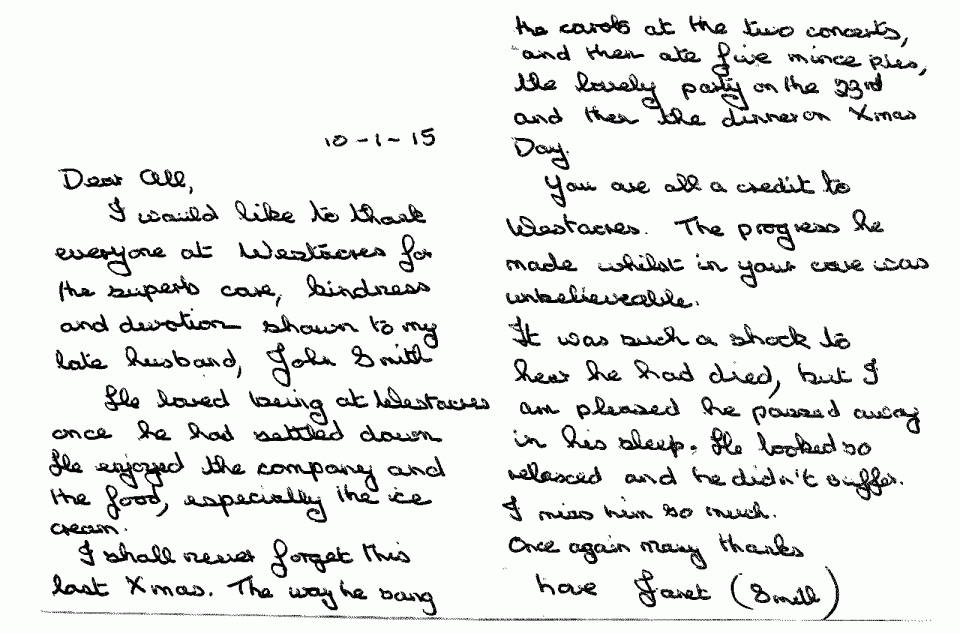 10-1-15
Dear All,
I would like to thank
everyone at Westacres for
the superb care, kindness
and devotion shown to my
late husband, John Smith
He loved being at Westacres
once he had settled down
He enjoyed the company and
the food, especially the ice
cream.
I shall never forget this
last Xmas. The way he sang
the carols at the two concerts,
and then ate five mince pies,
the lovely party on the 23rd
and then the dinner on Xmas
Day.
You are all a credit to
Westacres. The progress he
made whilst in your care was
unbelieveable.
It was such a shock to
hear he had died, but I
am pleased he passed away
in his sleep. He looked so
relaxed and he didn't suffer.
I miss him so much.
Once again many thanks
Love Janet (Smith)